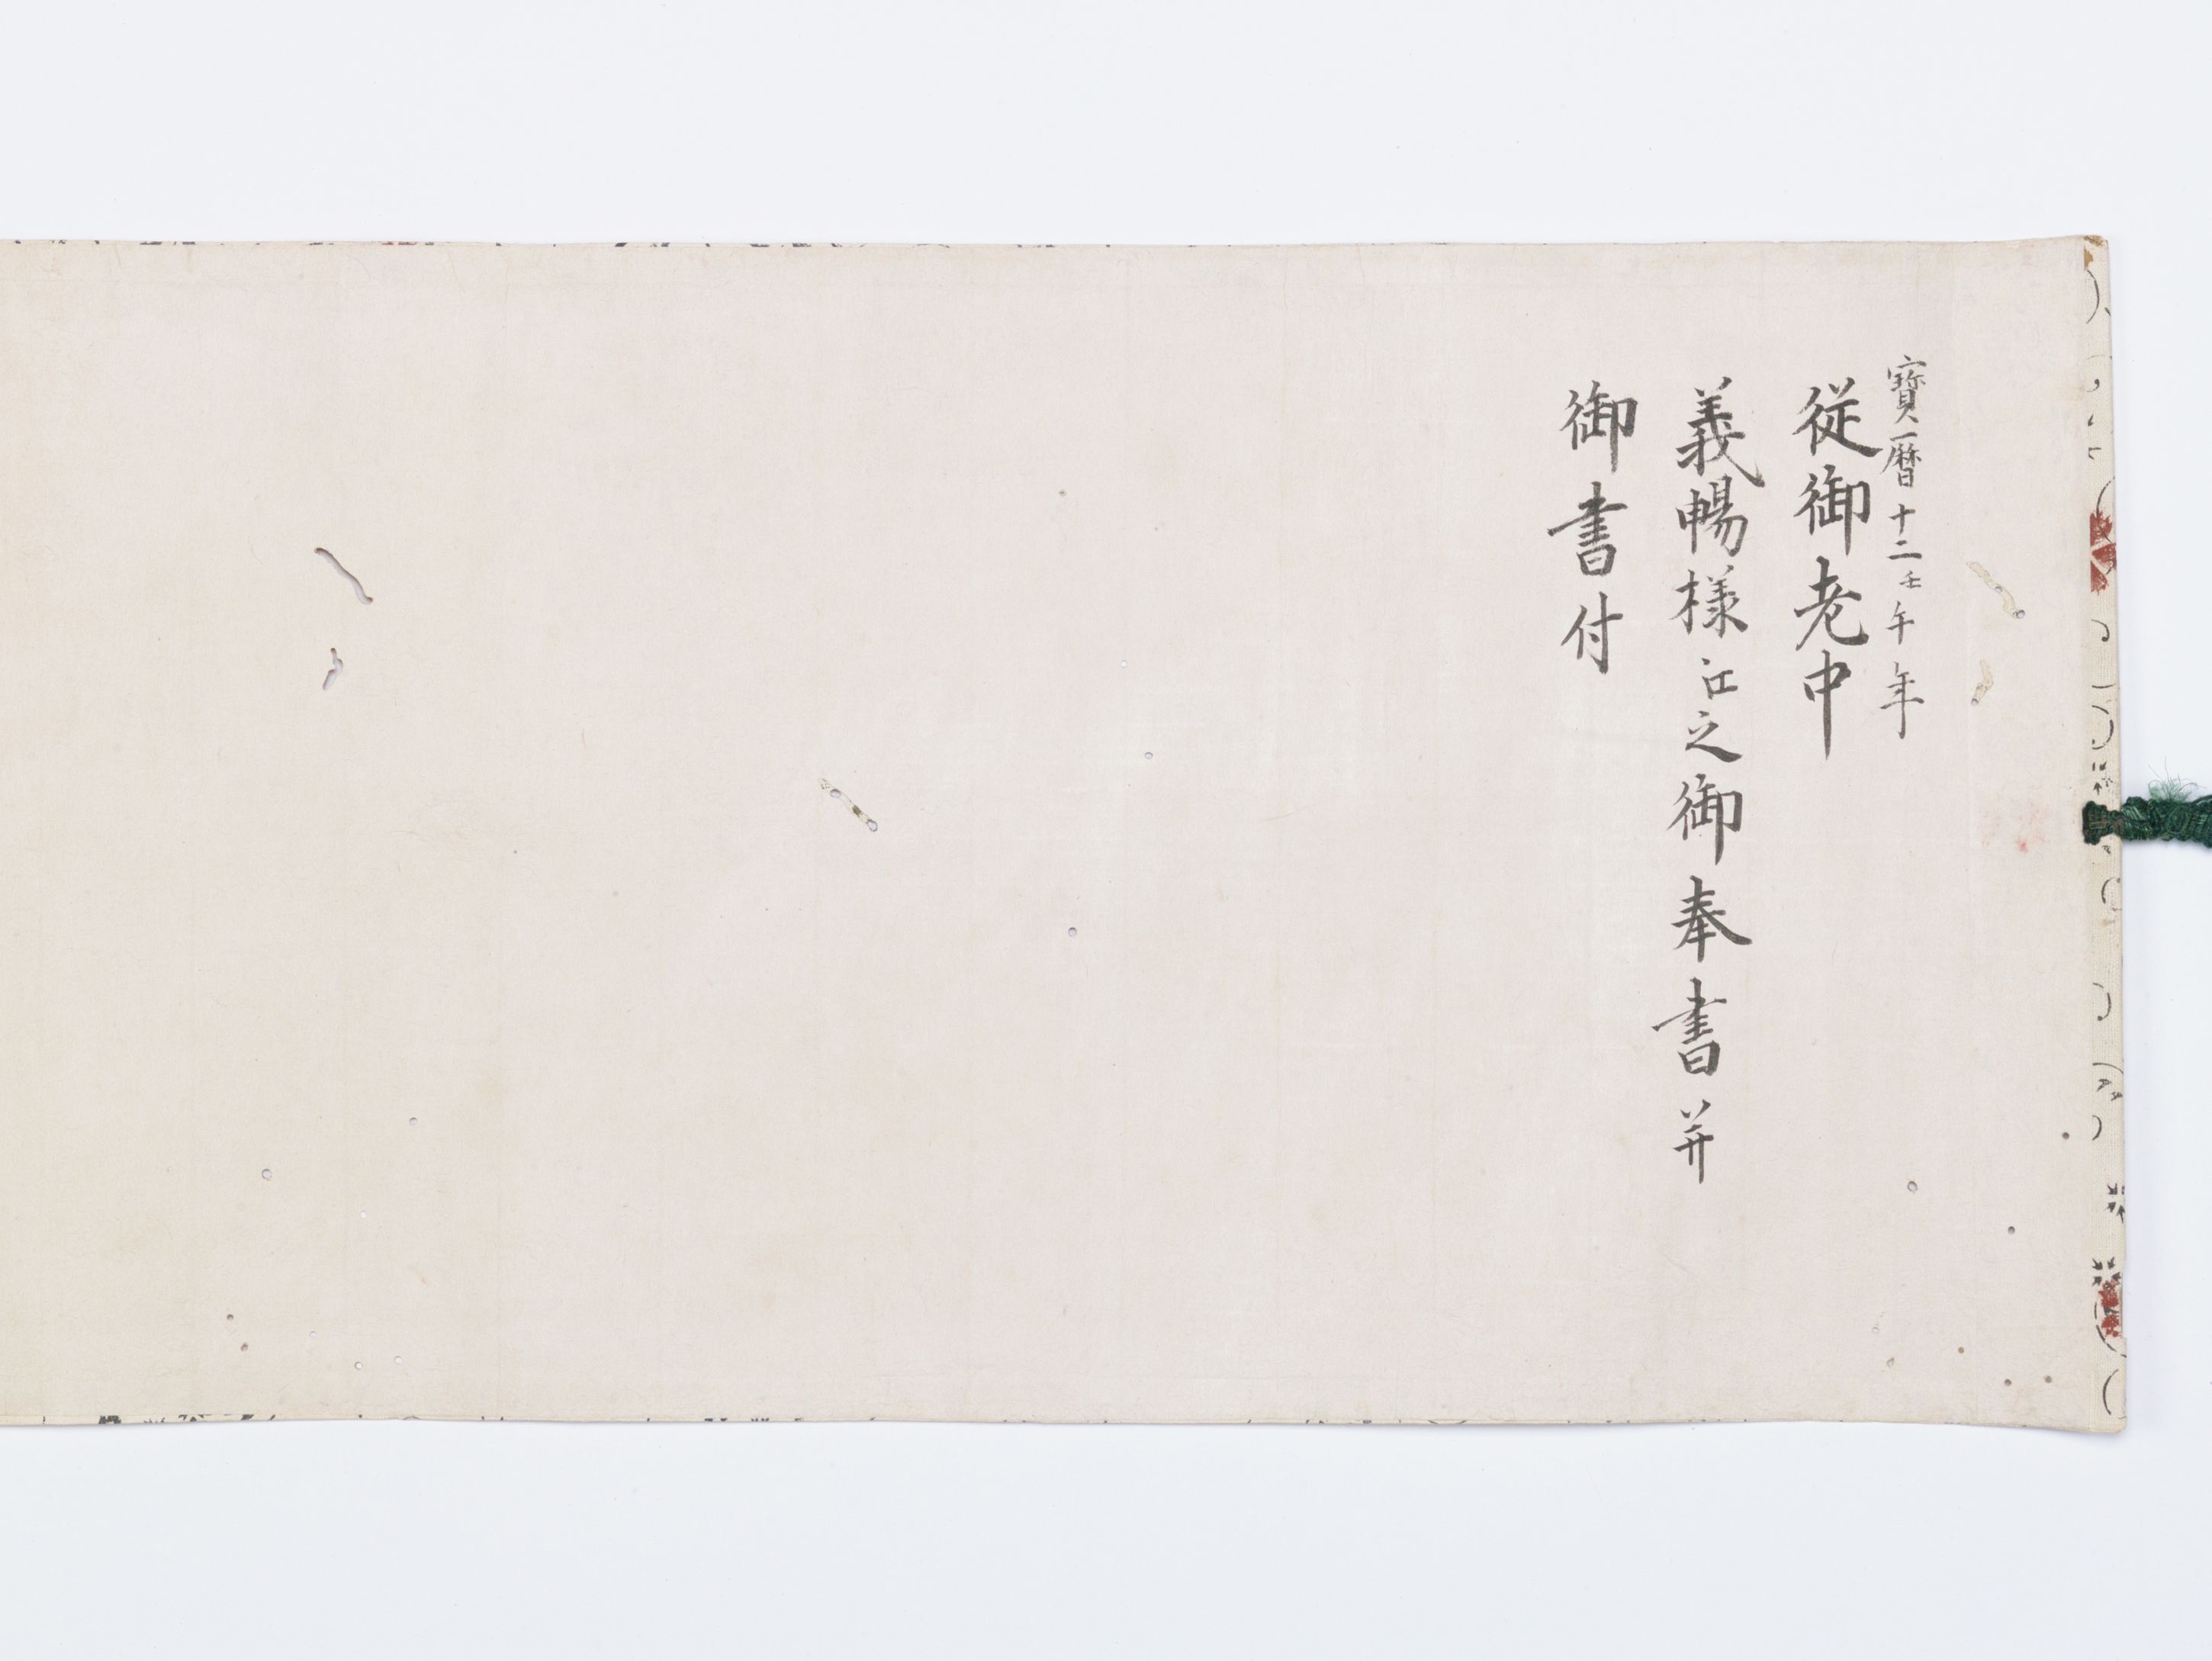 寳暦十二壬午年
従御老中
義暢様江之御奉書并
御書付